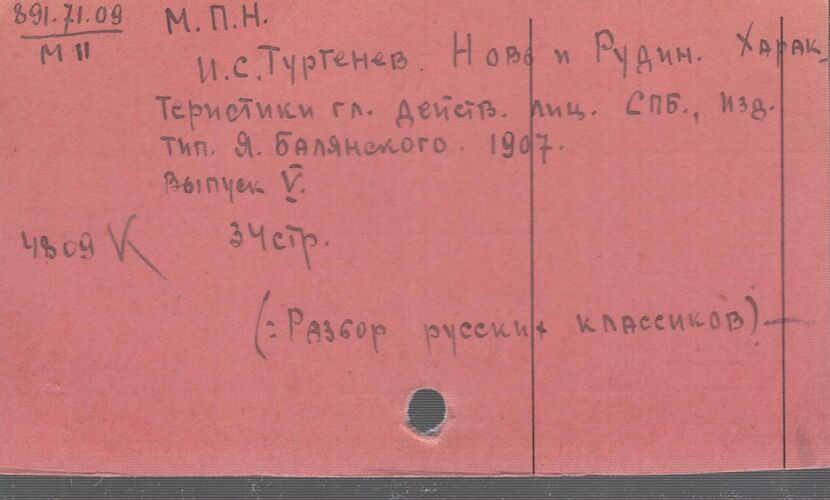 891.71.09 М.П.Н.
М II
И.С.Тургенев. Новь и Рудин. Харак-
теристики гл. действ. лиц. СПБ., изд.
тип. Я. Балянского. 1907.
Выпуск V.
4809 К 34 стр.
(=Разбор русских классиков)—